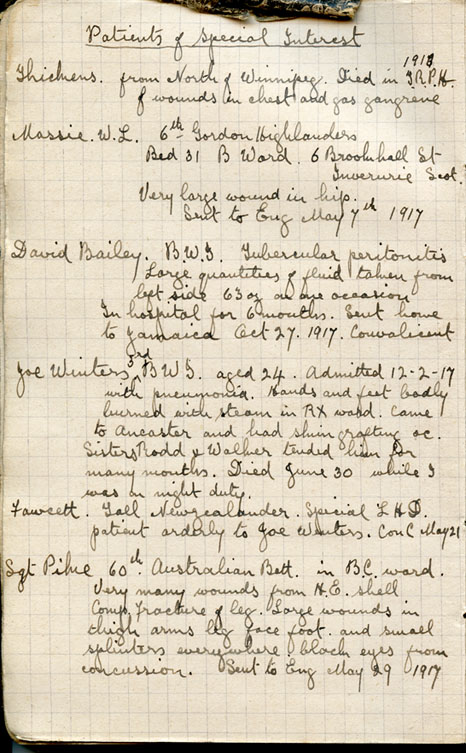 Patients of Special Interest
1913
Thickens. from North of Winnipeg. Died in I.R.P.H.
of wounds in chest and gas gangrene
Massie. W.L. 6th Gordon Highlanders
Bed 31 B Ward. 6 Broomhall St
Inverurie Scot.
Very large wound in hip.
Sent to Eng May 7th 1917
David Bailey. B.W.I. Tubercular peritonitis
Large quantities of fluid taken from
left side 63 oz on one occasion
In hospital for 6 months. Sent home
to Jamaica Oct 27. 1917. Convalicent
3rd
Joe Winters, B.W.I. aged 24. Admitted 12-2-17
with pneumonia. Hands and feet badly
burned with steam in RX ward. Came
to Ancaster and had skin grafting &c.
Sisters Rodd & Walker tended him for
many months. Died June 30 while I
was on night duty.
Fawcett. Tall Newzealander. Special L.H.D.
patient orderly to Joe Winters. Con C May 21
Sgt Pihie 60th Australian Batt. in B.C. ward.
Very many wounds from H.E. shell
Comp. Fracture of leg. Large wounds in
thigh arms leg face foot. and small
splinters everywhere black eyes from
concussion. Sent to Eng May 29 1917